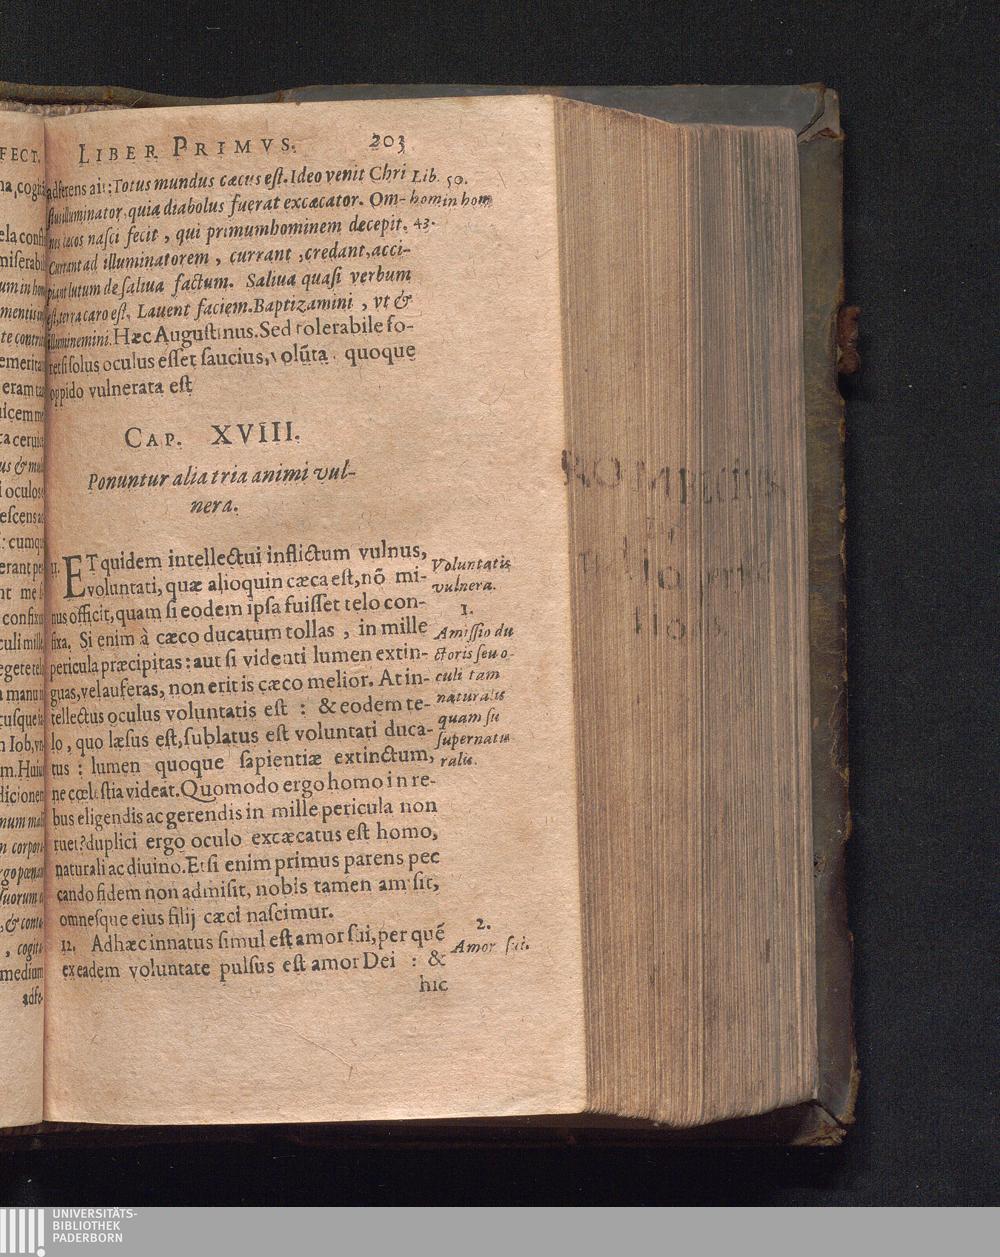 LIBER PRIMVS. 203
adferens ait: Totus mundus cæcus est. Ideo venit Chri
stus illuminator, quia diabolus fuerat excæcator. Om-
nes cæcos nasci fecit, qui primum hominem decepit.
Currant ad illuminatorem, currant, credant, acci-
piant lutum de saliua factum. Saliua quasi verbum
est, terra caro est. Lauent faciem. Baptizamini, vt &
illuminemini. Hæc Augustinus. Sed tolerabile fo-
ret si solus oculus esset saucius, volūta quoque
oppido vulnerata est
Lib. 50.
homin hom
43.
CAP. XVIII.
Ponuntur alia tria animi vul-
nera.
11. ET quidem intellectui inflictum vulnus,
voluntati, quæ alioquin cæca est, nō mi-
nus officit, quam si eodem ipsa fuisset telo con-
fixa. Si enim à cæco ducatum tollas, in mille
pericula præcipitas: aut si videnti lumen extin-
guas, vel auferas, non erit is cæco melior. At in-
tellectus oculus voluntatis est: & eodem te-
lo, quo læsus est, sublatus est voluntati duca-
tus: lumen quoque sapientiæ extinctum,
ne cœlestia videat. Quomodo ergo homo in re-
bus eligendis ac gerendis in mille pericula non
ruet? duplici ergo oculo excæcatus est homo,
naturali ac diuino. Et si enim primus parens pec
cando fidem non admisit, nobis tamen amisit,
omnesque eius filij cæci nascimur.
12. Ad hæc innatus simul est amor sui, per quē
ex eadem voluntate pulsus est amor Dei: &
hic
Voluntatis
vulnera.
1.
Amissio du
ctoris seu o-
culi tam
naturalis
quam su
supernatu
ralis.
2.
Amor sui.
FECT.
ela confi
um in hom
te contri
emerita
eram tan
uicem me
ta ceruic
i oculos
: cumqu
culi mille
n Iob, vn
m. Huiu
n corpor
, cogita
medium
adfe-
UNIVERSITÄTS-
BIBLIOTHEK
PADERBORN